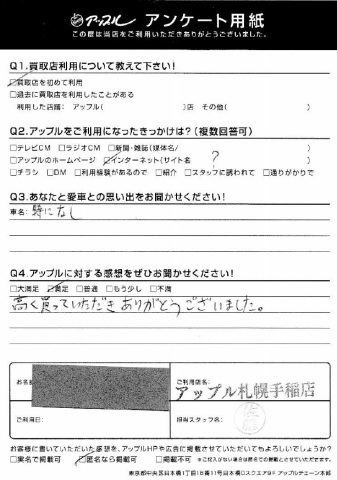 アップル アンケート用紙
この度は当店をご利用いただきありがとうございました。
Q1.買取店利用について教えて下さい!
☑買取店を初めて利用
□過去に買取店を利用したことがある
利用した店舗: アップル( )店 その他( )
Q2.アップルをご利用になったきっかけは?(複数回答可)
□テレビCM □ラジオCM □新聞・雑誌(媒体名/ )
□アップルのホームページ ☑インターネット(サイト名 ? )
□チラシ □DM □利用経験があるので □紹介 □スタッフに誘われて □通りがかりで
Q3.あなたと愛車との思い出をお聞かせください!
車名: 特になし
Q4.アップルに対する感想をぜひお聞かせください!
□大満足 ☑満足 □普通 □もう少し □不満
高く買っていただきありがとうございました。
お名
ご利用店名:
アップル札幌手稲店
ご利用日:
担当スタッフ名:
お客様に書いていただいた感想を、アップルHPや広告に掲載させていただいてもよろしいでしょうか?
□実名で掲載可 ☑匿名なら掲載可 □掲載不可 ※ご記入がない場合は匿名にて掲載とさせていただきます。
東京都中央区日本橋1丁目18番11号日本橋ロスクエア9F アップルチェーン本部